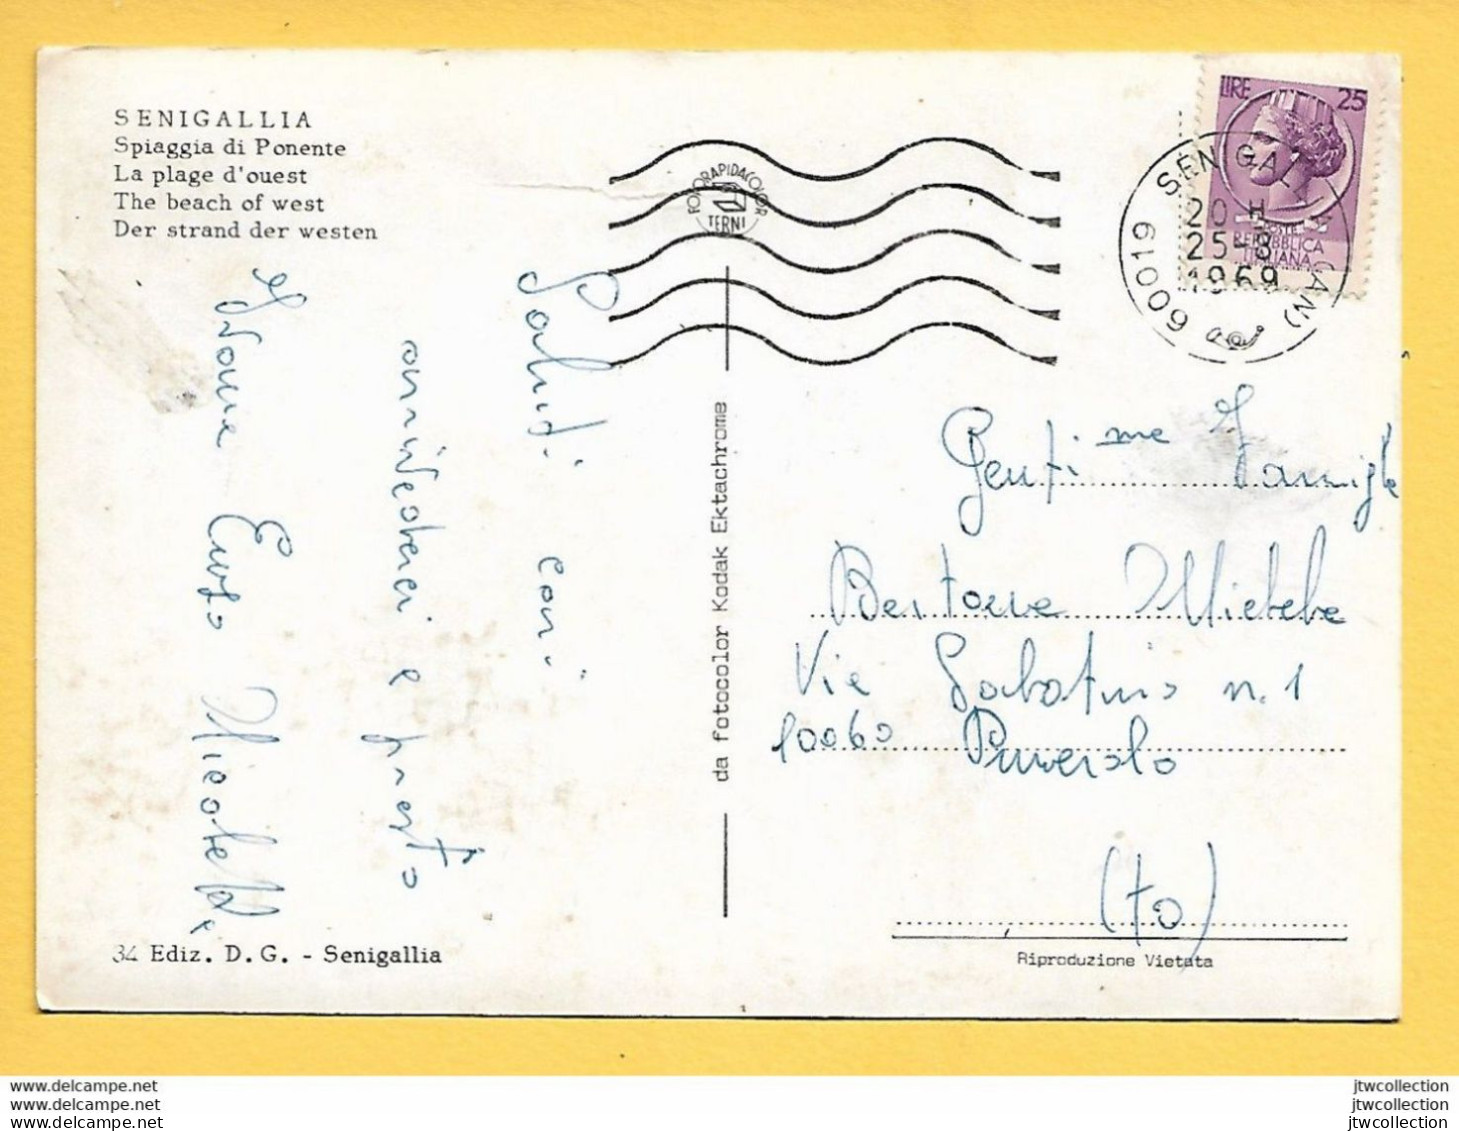 SENIGALLIA
Spiaggia di Ponente
La plage d'ouest
The beach of west
Der strand der westen
FOTORAPIDACOLOR
TERNI
LIRE 25
POSTE
REPUBBLICA
ITALIANA
60019 SENIGALLIA (AN)
20 H
25-8
1969
Saluti cari
arrivederci e presto
Ivone Enzo Nicoletta
da fotocolor Kodak Ektachrome
Gentime Famigle
Bertone Michele
Via Sabatino n. 1
10060 Pinerolo
(to)
34 Ediz. D. G. - Senigallia
Riproduzione Vietata
www.delcampe.net
www.delcampe.net
www.delcampe.net
jtwcollection
jtwcollection
jtwcollection